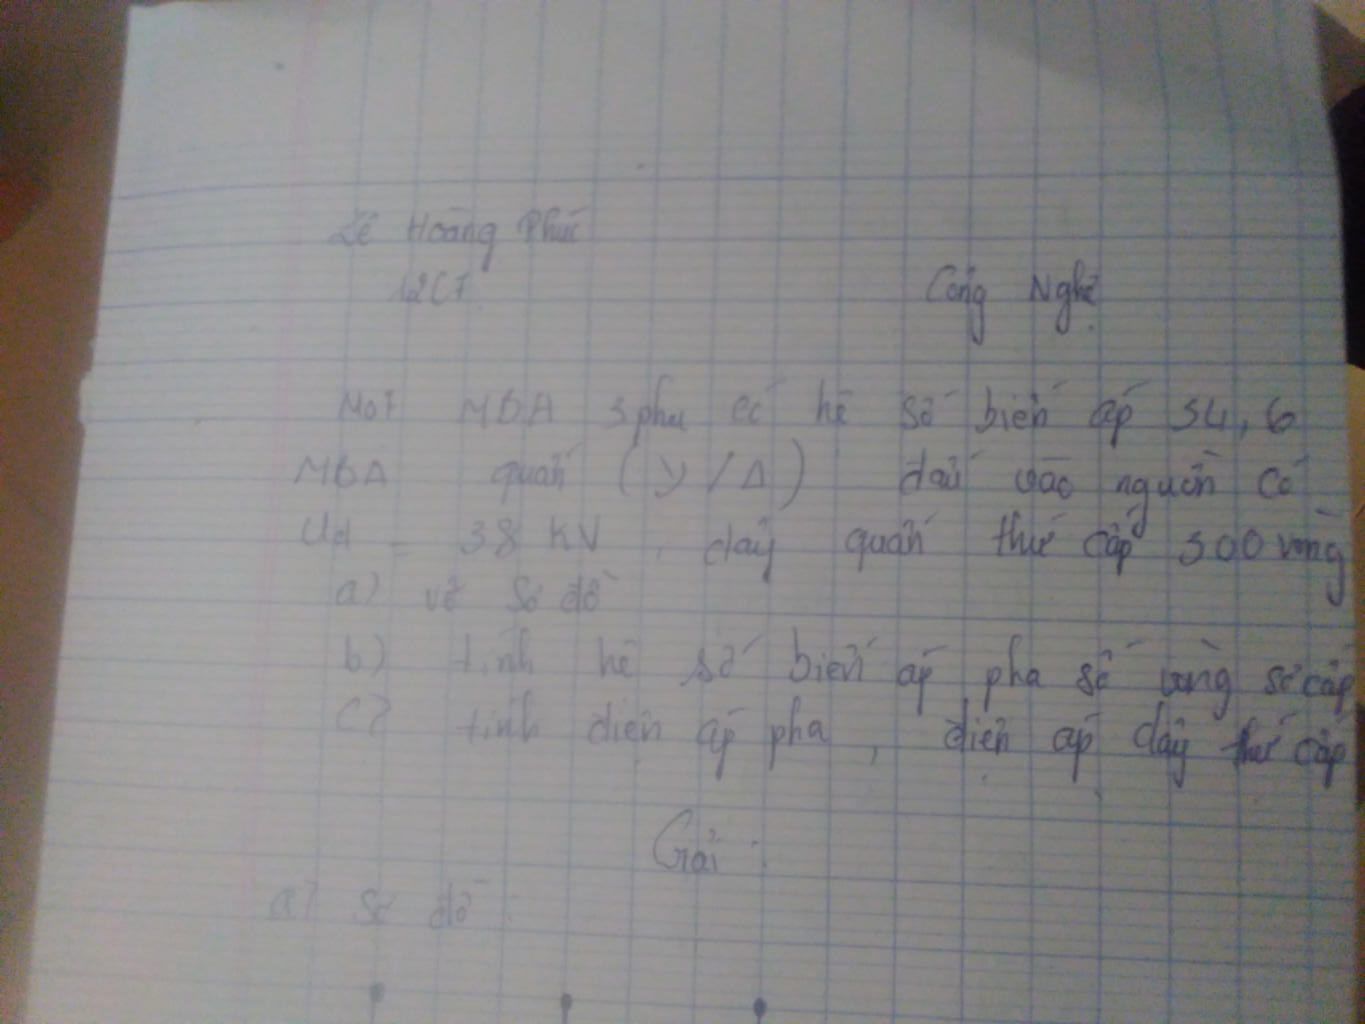 Lê Hoàng Phúc
12C7
Công Nghệ
Một MBA 3 pha có hệ số biến áp 34,6
MBA quấn (Y/Δ) đấu vào nguồn có
Ud = 38 KV, dây quấn thứ cấp 300 vòng
a) vẽ sơ đồ
b) tính hệ số biến áp pha số vòng sơ cấp
c) tính điện áp pha, điện áp dây thứ cấp
Giải:
a) Sơ đồ: